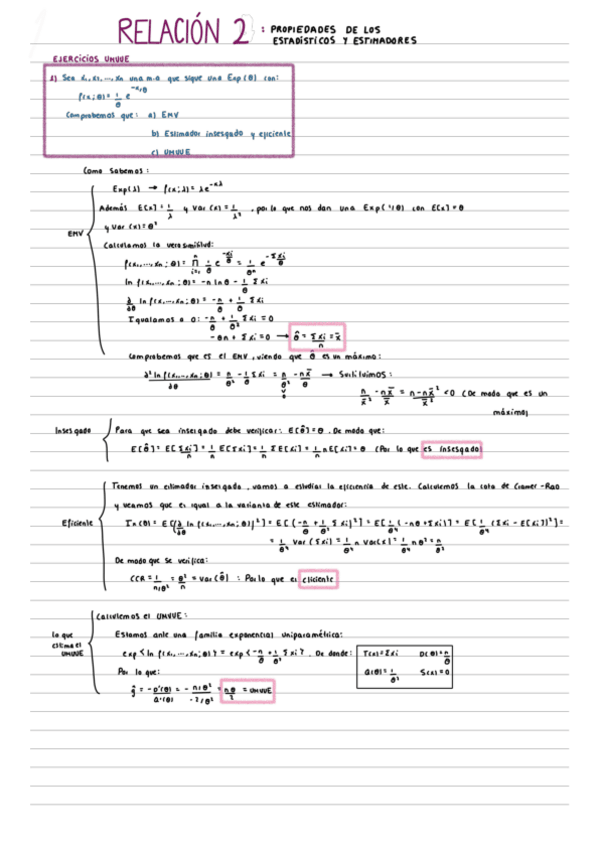 RELACIÓN 2 : PROPIEDADES DE LOS
ESTADÍSTICOS Y ESTIMADORES
EJERCICIOS UMVUE
1) Sea x₁, x₂, ..., xₙ una m.a que sigue una Exp(θ) con:
f(x; θ) = 1/θ e^(-x/θ)
Comprobemos que: a) EMV
b) Estimador insesgado y eficiente
c) UMVUE
Como sabemos:
Exp(λ) → f(x; λ) = λe^(-xλ)
Además E[x] = 1/λ y Var(x) = 1/λ², por lo que nos dan una Exp(1/θ) con E[x] = θ
y Var(x) = θ²
EMV
Calculamos la verosimilitud:
f(x₁, ..., xₙ; θ) = ∏ᵢ₌₁ⁿ 1/θ e^(-xi/θ) = 1/θⁿ e^(-Σxi/θ)
ln f(x₁, ..., xₙ; θ) = -n ln θ - 1/θ Σxi
∂/∂θ ln f(x₁, ..., xₙ; θ) = -n/θ + 1/θ² Σxi
Igualamos a 0: -n/θ + 1/θ² Σxi = 0
-θn + Σxi = 0 → θ̂ = Σxi/n = x̄
Comprobemos que es el EMV, viendo que θ̂ es un máximo:
∂² ln f(x₁, ..., xₙ; θ)/∂θ = n/θ² - 1/θ Σxi = n/θ² - nx̄/θ → Sustituimos:
n/x̄² - nx̄/x̄ = n - nx̄²/x̄² < 0 (De modo que es un
máximo)
Insesgado
Para que sea insesgado debe verificar: E[θ̂] = θ. De modo que:
E[θ̂] = E[Σxi/n] = 1/n E[Σxi] = 1/n ΣE[xi] = 1/n n E[xi] = θ (Por lo que es insesgado)
Tenemos un estimador insesgado, vamos a estudiar la eficiencia de este. Calculemos la cota de Cramer-Rao
y veamos que es igual a la varianza de este estimador:
Eficiente
In(θ) = E[(∂/∂θ ln f(x₁, ..., xₙ; θ))²] = E[(-n/θ + 1/θ² Σxi)²] = E[1/θ⁴ (-nθ + Σxi)²] = E[1/θ⁴ (Σxi - E[xi])²] =
= 1/θ⁴ Var(Σxi) = 1/θ⁴ n Var(x) = 1/θ⁴ n θ² = n/θ²
De modo que se verifica:
CCR = 1/(n/θ²) = θ²/n = Var(θ̂) : Por lo que es eficiente
Calculemos el UMVUE:
Lo que
estima el
UMVUE
Estamos ante una familia exponencial uniparamétrica:
exp{ln f(x₁, ..., xₙ; θ)} = exp{-n/θ + 1/θ² Σxi}. De donde: T(x) = Σxi D(θ) = n/θ
Q(θ) = 1/θ² S(x) = 0
Por lo que:
ĝ = -D'(θ)/Q'(θ) = - n/θ²/-2/θ³ = nθ/2 = UMVUE